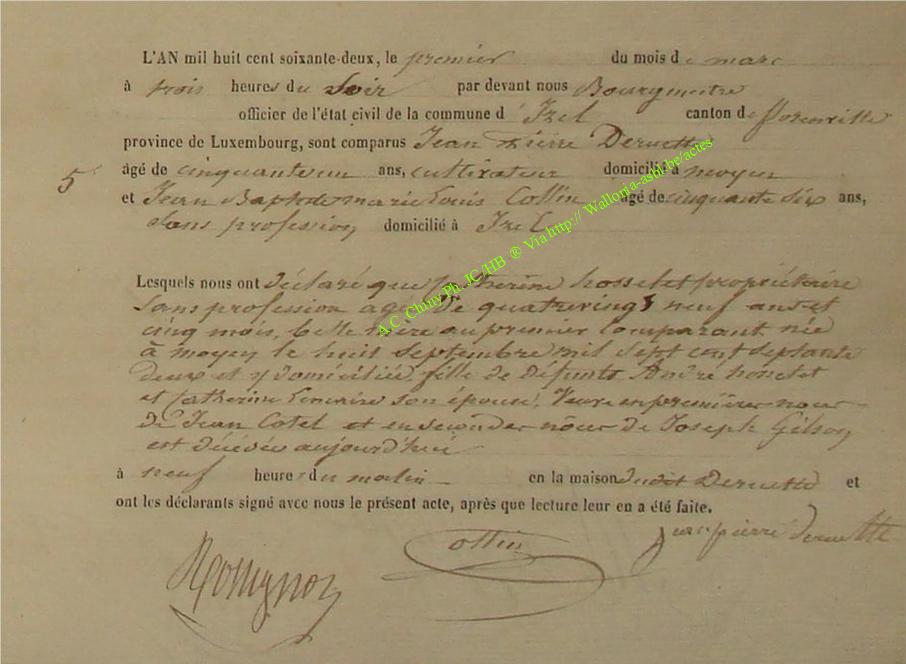 L'AN mil huit cent soixante-deux, le premier du mois de mars
à trois heures du Soir par devant nous Bourgmestre
officier de l'état civil de la commune d'Izel canton de florenville
province de Luxembourg, sont comparus Jean Pierre Deruette
5 âgé de cinquante un ans, cultivateur domicilié à moyen
et Jean Baptiste marie Louis Collin âgé de cinquante six ans,
Sans profession domicilié à Izel
A.C. Chiny Ph. JC/HB ® Via http:// Wallonia-asbl.be/actes
Lesquels nous ont Déclaré que Catherine hosselet propriétaire
Sans profession agée de quatrevingt neuf ans et
cinq mois, belle mère au premier Comparant née
à moyen le huit Septembre mil Sept cent Septante
deux et y Domiciliée, fille de Défunts André hosselet
et Catherine son épouse, Veuve en premières noces
de Jean Cotel et en secondes nôces de Joseph Gilson
est décédée aujourd'hui
à neuf heures du matin en la maison dudit Deruette et
ont les déclarants signé avec nous le présent acte, après que lecture leur en a été faite.
Jean pierre deruette
Collin
Rossignon